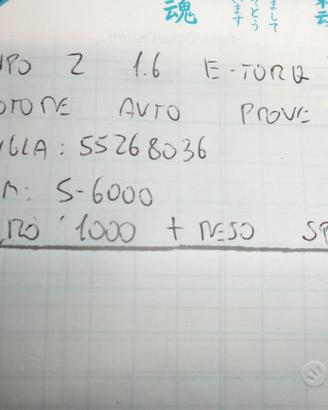 魂
まして
とう
います
IPO 2 1.6 E-TORQ
OTORE AUTO PROVE
IGLA: 55268036
M: 5-6000
RO 1000 + RESO SP